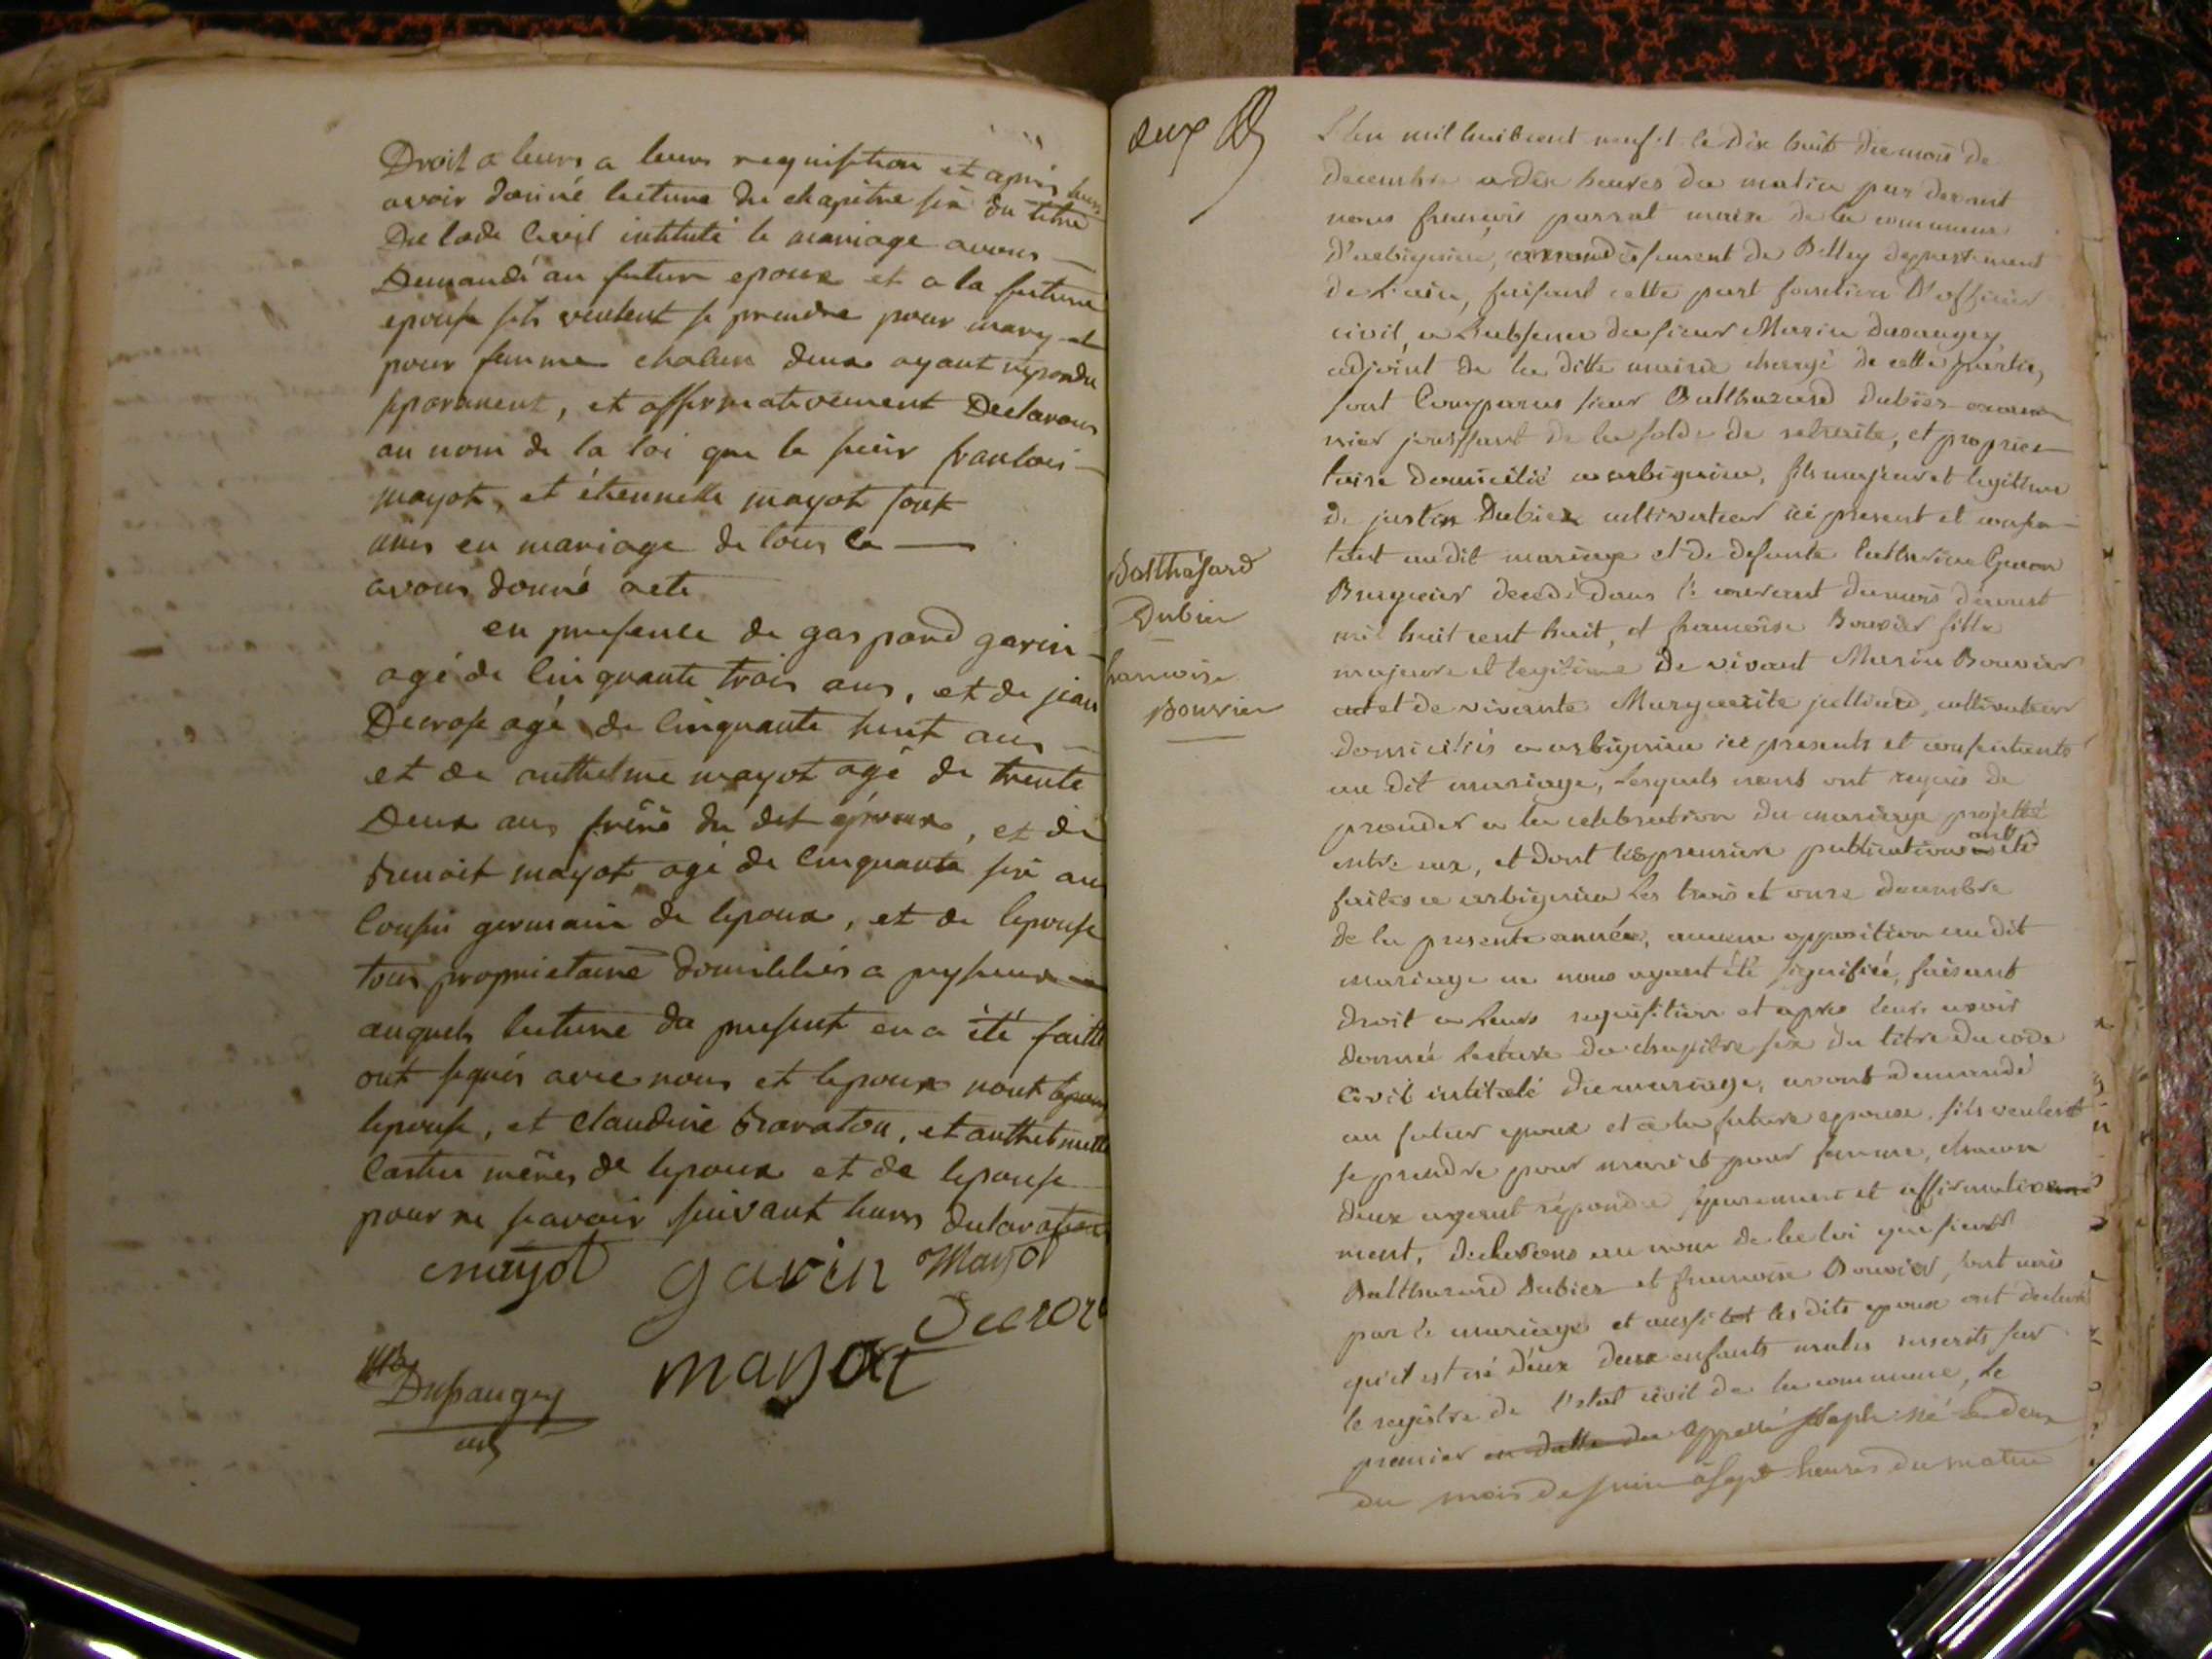 Droit a leurs a leurs requisition et après leurs
avoir donné lecture du chapitre six du titre
Du Code Civil intitulé le mariage avons —
Demandé au futur epoux et a la future
epouse sils veulent se prendre pour mary et
pour femme chacun deux ayant repondu
separament, et affirmativement Declarons
au nom de la loi que le sieur francois —
mayot, et étiennette mayot sont
unis en mariage de tous ce —
avons donné acte
en presence de gaspard gavin
agé de cinquante trois ans, et de jean
Decrose agé de cinquante huit ans —
et de anthelme mayot agé de trente
Deux ans frère du dit époux, et de
Benoit mayot agé de cinquante six an
Cousin germain de lepoux, et de lepouse
tous proprietaire domiciliés a
auquels lecture du present en a été faitte
ont signés avec nous et lepoux nont
lepouse, et Claudine Bravaton, et anthelmette
mères de lepoux et de lepouse
pour ne scavoir suivant leurs declaration
mayot gavin Mayot
Decroze
Dusaugey mayot
deux
L'an mil huit cent neuf et le dix huit du mois de
decembre a dix heures du matin par devant
nous françois parrat maire de la commune
D'arbignieu, arrondissement de Belley departement
de l'ain, faisant cette part fonction D'officier
civil, a L'absence du sieur Marin dusaugey
adjoint de la ditte mairie chargé de cette partie,
sont Comparus sieur Balthazard Dubier
nier jouissant de la solde de retraite, et proprie-
taire domicilié a arbignieu, fils majeur et legitime
de justin Dubier cultivateur ici present et consen-
tant audit mariage et de defunte Catherine
Brugnier decedé dans le courant du mois d'aoust
mil huit cent huit, et francoise Bouvier fille
majeure et legitime de vivant Marin Bouvier
et de vivante Marguerite jullind, cultivateur
domiciliés a arbignieu ici presents et consentants
au dit mariage, Lesquels nous ont requis de
proceder a la celebration du mariage projetté
entre eux, et dont les premiere publications ont été
faites a arbignieu les trois et onze decembre
de la presente année, aucune opposition au dit
mariage ne nous ayant été signifiée, faisant
droit a leurs requisition et apres leurs avoir
donnée lecture du chapitre six du titre du code
Civil intitulé du mariage, avons demandé
au futur epoux et a la future epouse sils veulent
se prendre pour mari et pour femme, chacun
deux ayant répondu separement et affirmative
ment, declarons au nom de la loi que sieur
Balthazard Dubier et francoise Bouvier, sont unis
par le mariage et aussi tot les dits epoux ont declaré
qu'il est né d'eux deux enfants males inscrits sur
le registre de l'etat civil de la commune, Le
premier en datte du appellé joseph né le deux
du mois de juin à sept heures du matin
Balthasard
Dubier
francoise
Bouvier